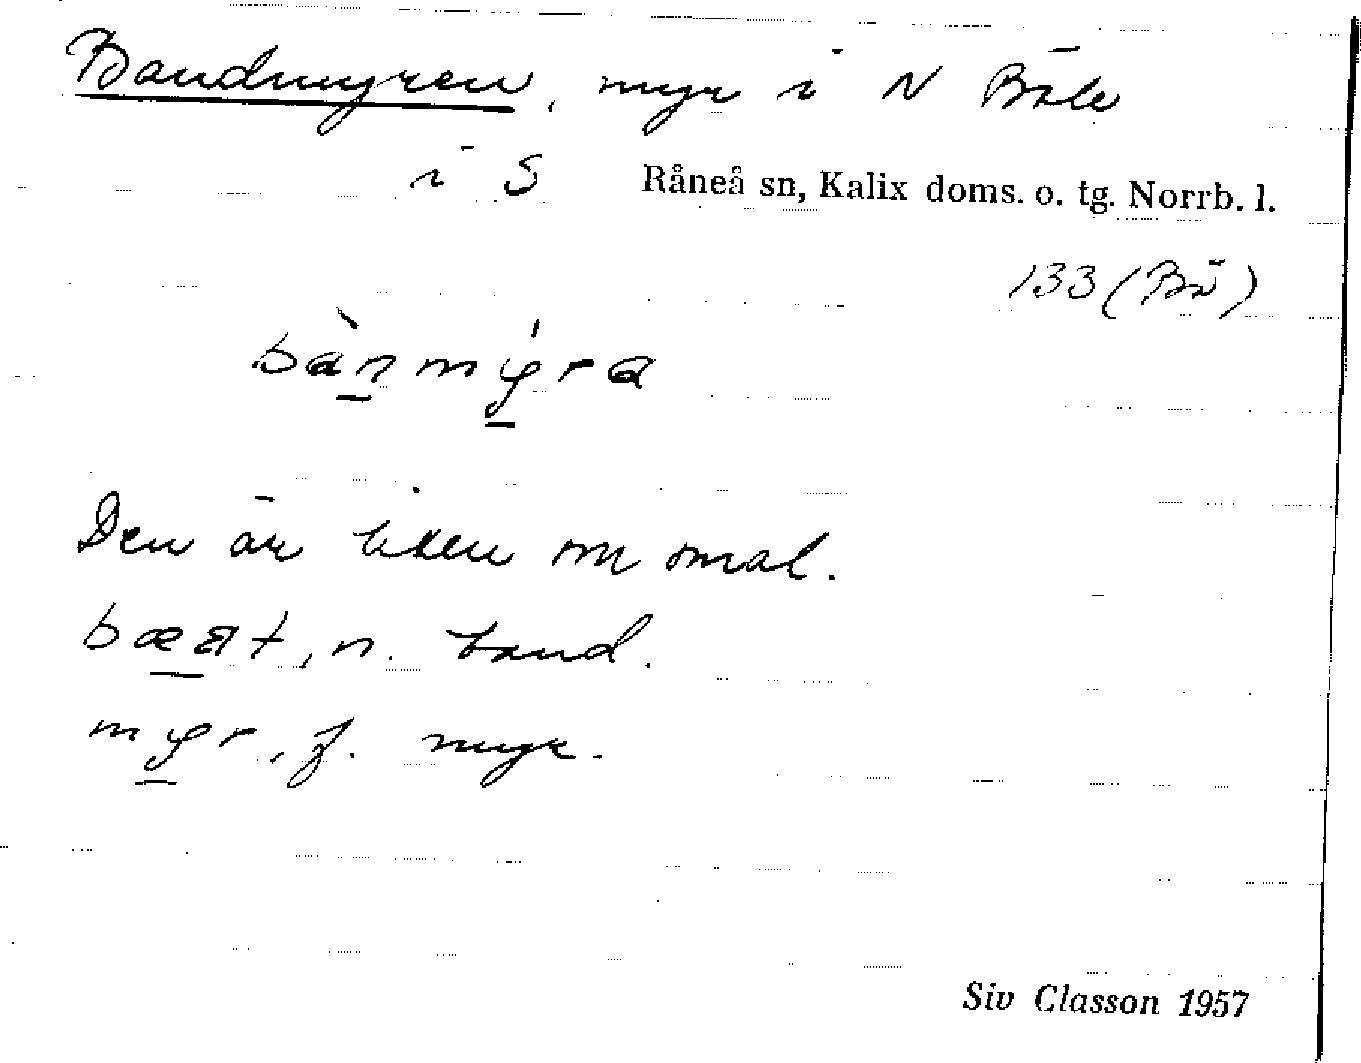 Bandmyren, myr i N Böle
i S Råneå sn, Kalix doms. o. tg. Norrb. l.
133 (Bö)
bànmýra
Den är liten om smal.
bæǣt, n. band.
myr, f. myr.
Siv Classon 1957